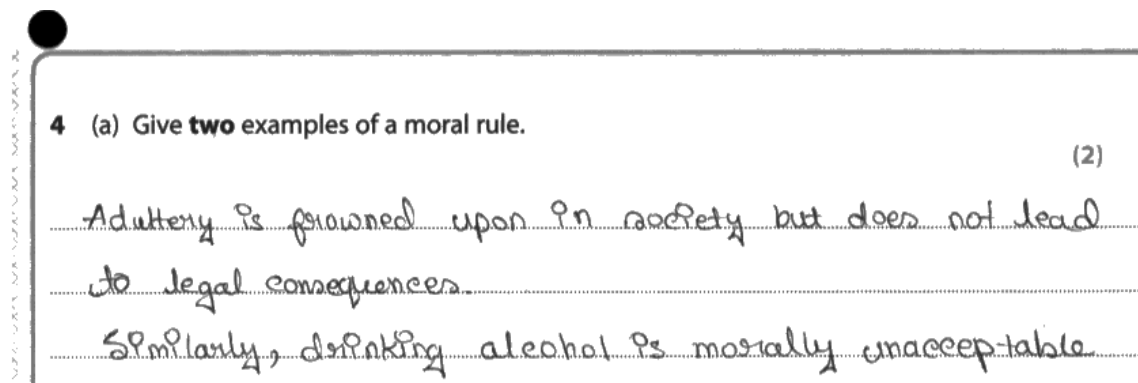 4 (a) Give two examples of a moral rule.
(2)
Adultery is frowned upon in society but does not lead
to legal consequences.
Similarly, drinking alcohol is morally unacceptable